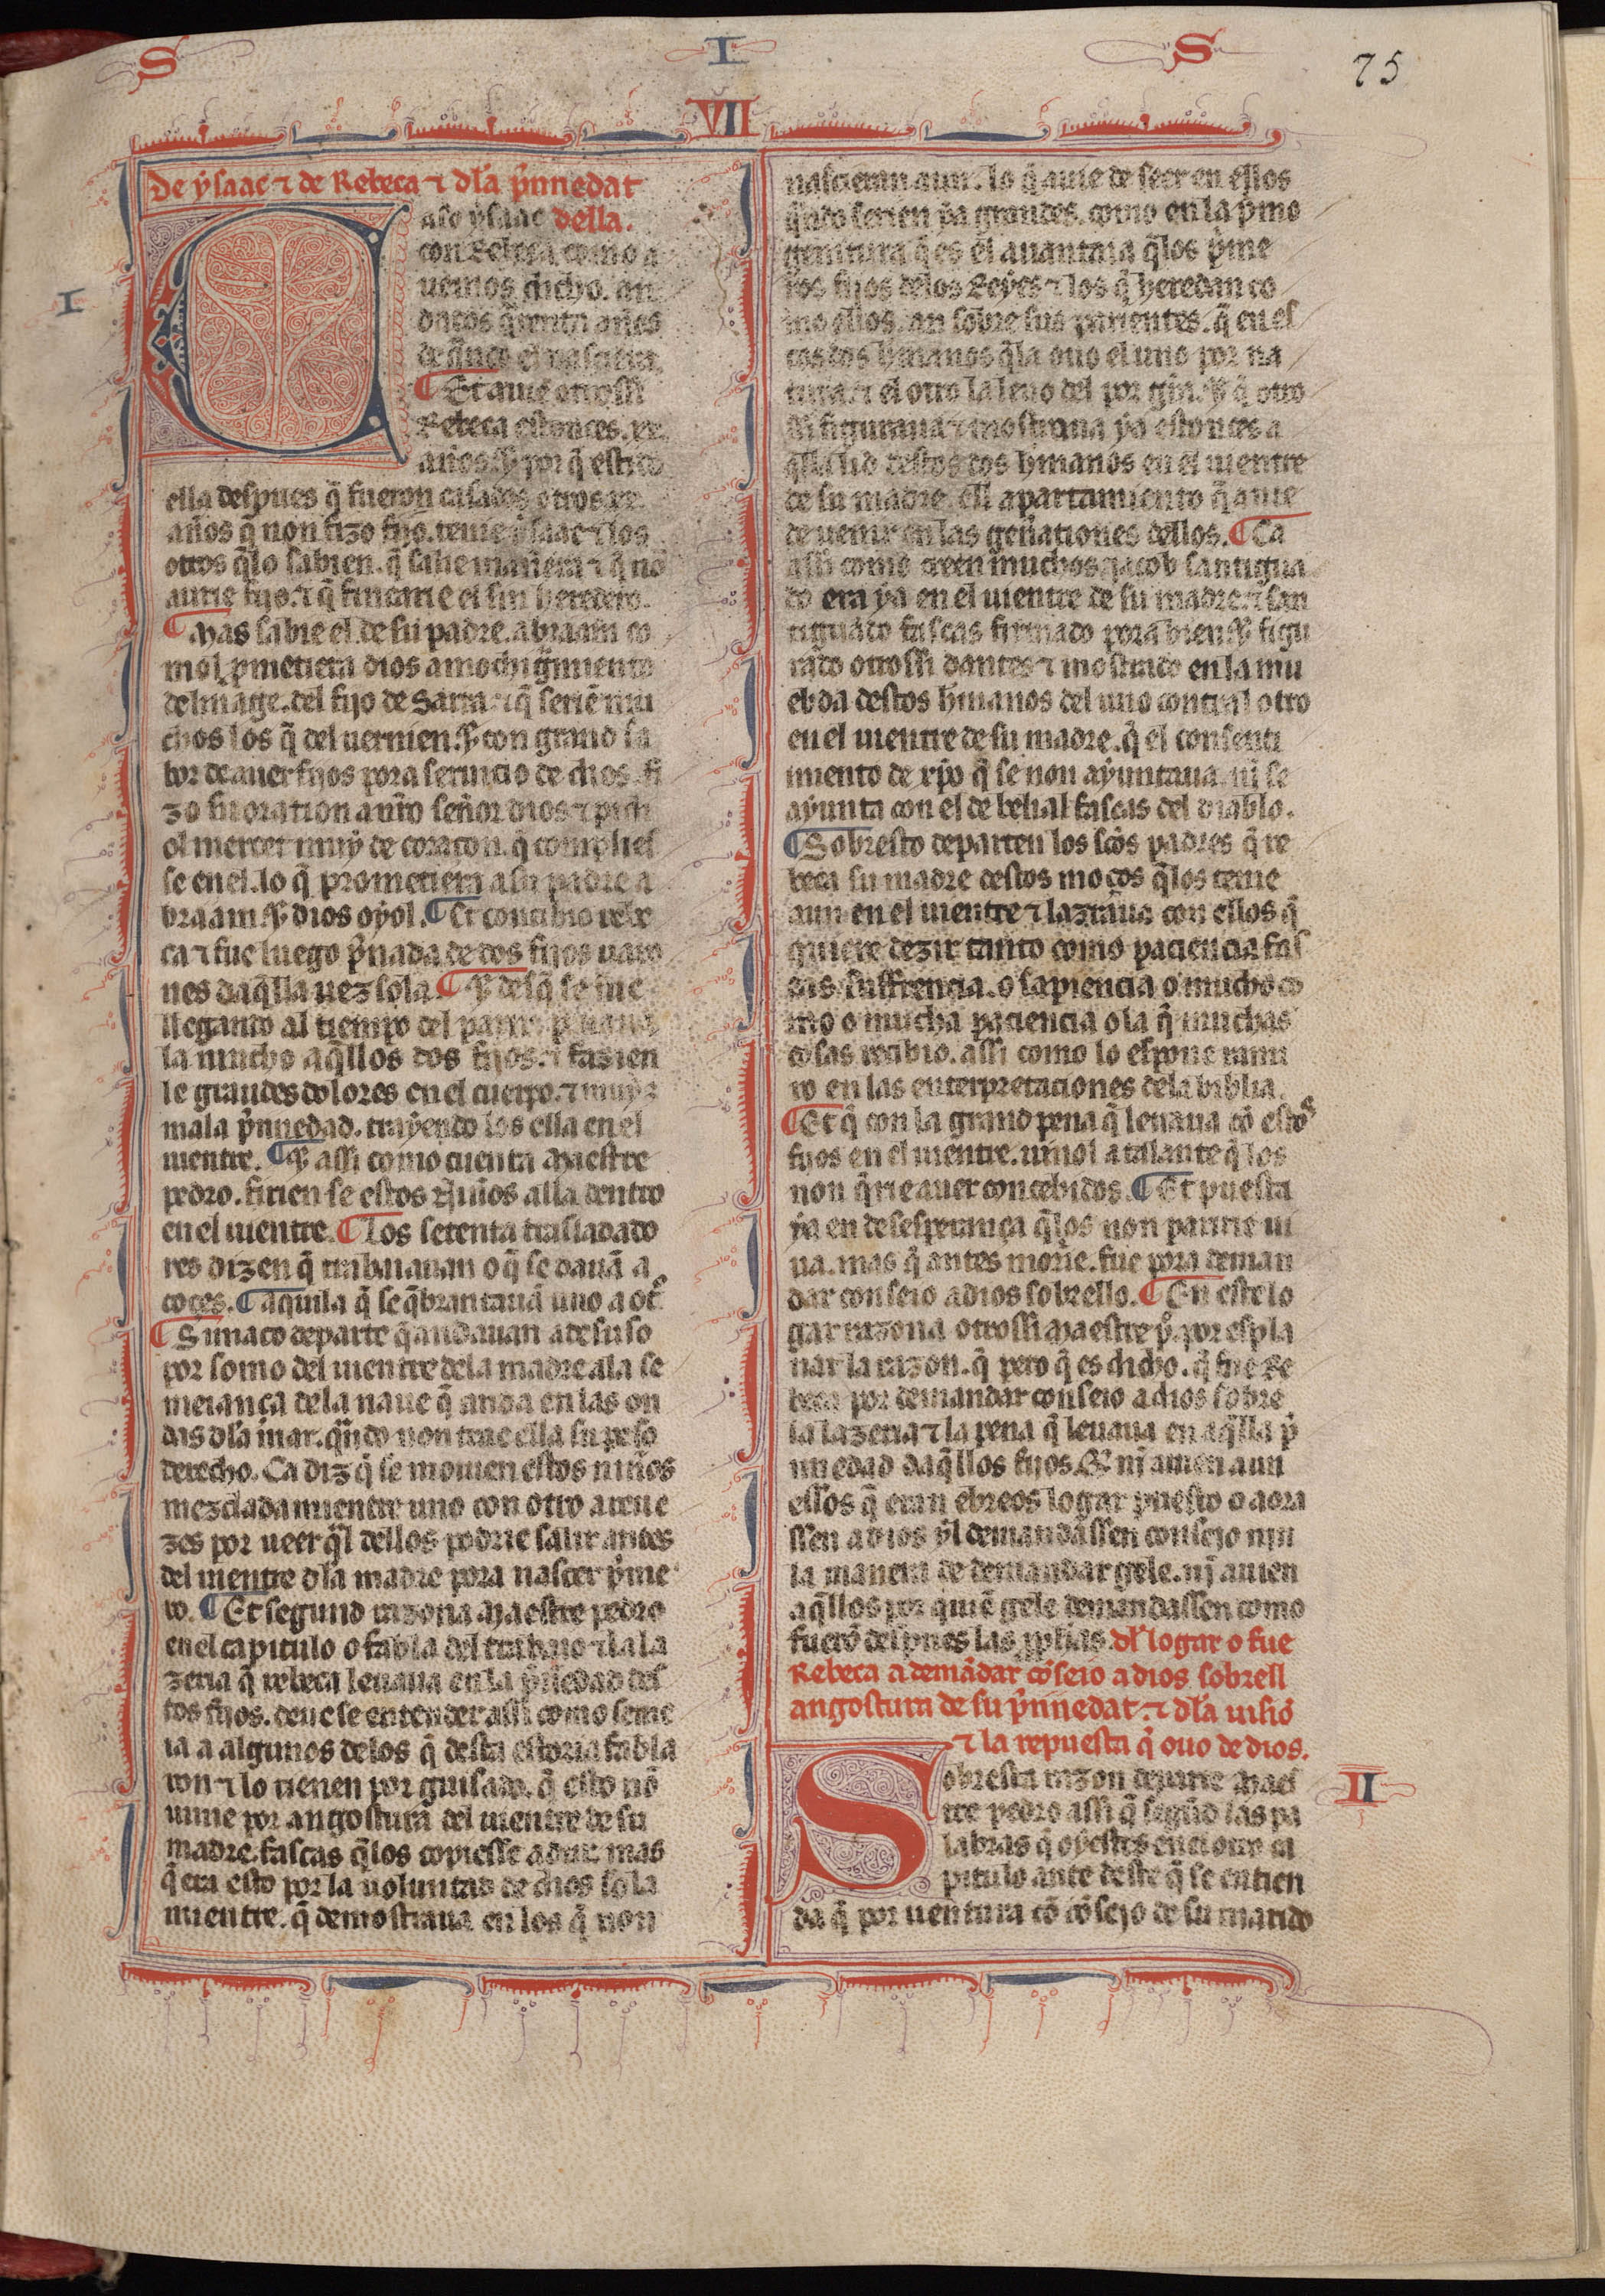 S I S
75
VII
De ẏsaac ⁊ de Rebeca ⁊ dl'a p̃nnedat
della.
I
Caso ẏsaac
con Rebeca como a
uemos dicho. an
dados q̃renta años
de q̃ndo el nasciera.
¶ Et auie otrossi
Rebeca estonces. xx.
años. ⁊ por q̃ estido
ella despues q̃ fueron casados otros xx.
años q̃ non fizo fijo. tenie ẏsaac ⁊ los
otros q̃lo sabien. q̃ salie mañera ⁊ q̃ nõ
aurie fijo. ⁊ q̃ fincarie el sin heredero.
¶ Mas sabie el. de su padre. abraam co
mol p̃metiera dios amochiguamiento
de linage. del fijo de Sarra. ⁊ q̃ seriẽ mu
chos los q̃ del uernien. ⁊ con grand sa
bor de auer fijos pora seruicio de dios. fi
zo su oration a nr̃o señor dios ⁊ pidi
ol mercet muẏ de coraçon. q̃ complies
se en el. lo q̃ prometiera a su padre a
braam. ⁊ dios oẏol. ¶ Et concibio rebe
ca ⁊ fue luego p̃nnada de dos fijos uaro
nes daq̃lla uez sola. ¶ ⁊ desq̃ se fue
llegando al tiempo del parto.
la mucho aq̃llos dos fijos. ⁊ fazien
le grandes dolores en el cuerpo. ⁊ muẏ
mala p̃nnedad. traẏendo los ella en el
uientre. ¶ ⁊ assi como cuenta Maestre
pedro. firien se estos niños alla dentro
en el uientre. ¶ Los setenta trasladado
res dizen q̃ trabaiauan o q̃ se dauã a
coces. ¶ aquila q̃ se q̃brantauã uno a ot̃o
¶ Simaco departe q̃ andauan a desuso
por somo del uientre dela madre ala se
meiança dela naue q̃ anda en las on
das dl'a mar. q̃ndo non trae ella su peso
derecho. Ca diz q̃ se mouien estos niños
mezclada mientre uno con otro a reue
zes por ueer q̃l dellos podrie salir antes
del uientre dl'a madre pora nascer p̃me
ro. ¶ Et segund razona Maestre pedro
en el capitulo o fabla del trabaio ⁊ la la
zeria q̃ rebeca leuaua en la p̃nnedad des
tos fijos. deue se entender assi como seme
ia a algunos delos q̃ desta estoria fabla
ron ⁊ lo tienen por guisado. q̃ esto nõ
uinie por angostura del uientre de su
madre. fascas q̃los copiesse adur. mas
q̃ era esto por la uoluntad de dios sola
mientre. q̃ demostraua en los q̃ non
nascieran aun. lo q̃ auie de seer en ellos
q̃ndo serien ẏa grandes. como en la p̃mo
genitura q̃ es el auantaia q̃los p̃me
ros fijos delos Reẏes ⁊ los q̃ heredan co
mo ellos. an sobre sus parientes. q̃ en es
tos dos hmanos q̃la ouo el uno por na
tura. ⁊ el otro la leuo del por gr̃a. ⁊ q̃ otro
ssi figuraua ⁊ mostraua ẏa estonces a
q̃lla lid destos dos hmanos en el uientre
de su madre. ell apartamiento q̃ auie
de uenir en las gen̄ationes dellos. ¶ Ca
assi como creen muchos iacob santigua
do era ẏa en el uientre de su madre. ⁊ san
tiguado fascas firmado pora bien. ⁊ figu
rado otrossi dantes ⁊ mostrado en la mu
ebda destos hmanos del uno contral otro
en el uientre de su madre. q̃ el consenti
miento de xp̃o q̃ se non aẏuntaua. nj̃ se
aẏunta con el de belial fascas del diablo.
¶ Sobresto departen los scõs padres q̃ re
beca su madre destos moços q̃los tenie
aun en el uientre ⁊ lazraua con ellos q̃
quiere dezir tanto como paciencia fas
cas suffrencia. o sapiencia o mucho co
mo o mucha paciencia o la q̃ muchas
cosas recibio. assi como lo espone rami
ro en las enterpretaciones dela biblia.
¶ Et q̃ con la grand pena q̃ leuaua cõ estos
fijos en el uientre. uinol a talante q̃los
non q̃rie auer concebidos. ¶ Et puesta
ẏa en desesperança q̃los non paririe ui
ua. mas q̃ antes morrie. fue pora deman
dar conseio a dios sobrello. ¶ En este lo
gar razona otrossi Maestre p̃. por espla
nar la razon. q̃ pero q̃ es dicho. q̃ fue Re
beca por demandar conseio a dios sobre
la lazeria ⁊ la pena q̃ leuaua en aq̃lla p̃
nnedad daq̃llos fijos. Et nj̃ auien aun
ellos q̃ eran ebreos logar puesto o aora
ssen a dios ẏl demandassen consejo nin
la manera de demandar gele. nj̃ auien
aq̃llos por quiẽ gele demandassen como
fuerõ despues las ꝓph̃ias. dl' logar o fue
Rebeca a demãdar cõseio a dios sobrell
angostura de su p̃nnedat. ⁊ dl'a uisiõ
⁊ la repuesta q̃ ouo de dios.
II
Sobresta razon departe Maes
tre pedro assi q̃ segũd las pa
labras q̃ oẏestes en el otro ca
pitulo ante deste q̃ se entien
da q̃ por uentura cõ cõsejo de su marido